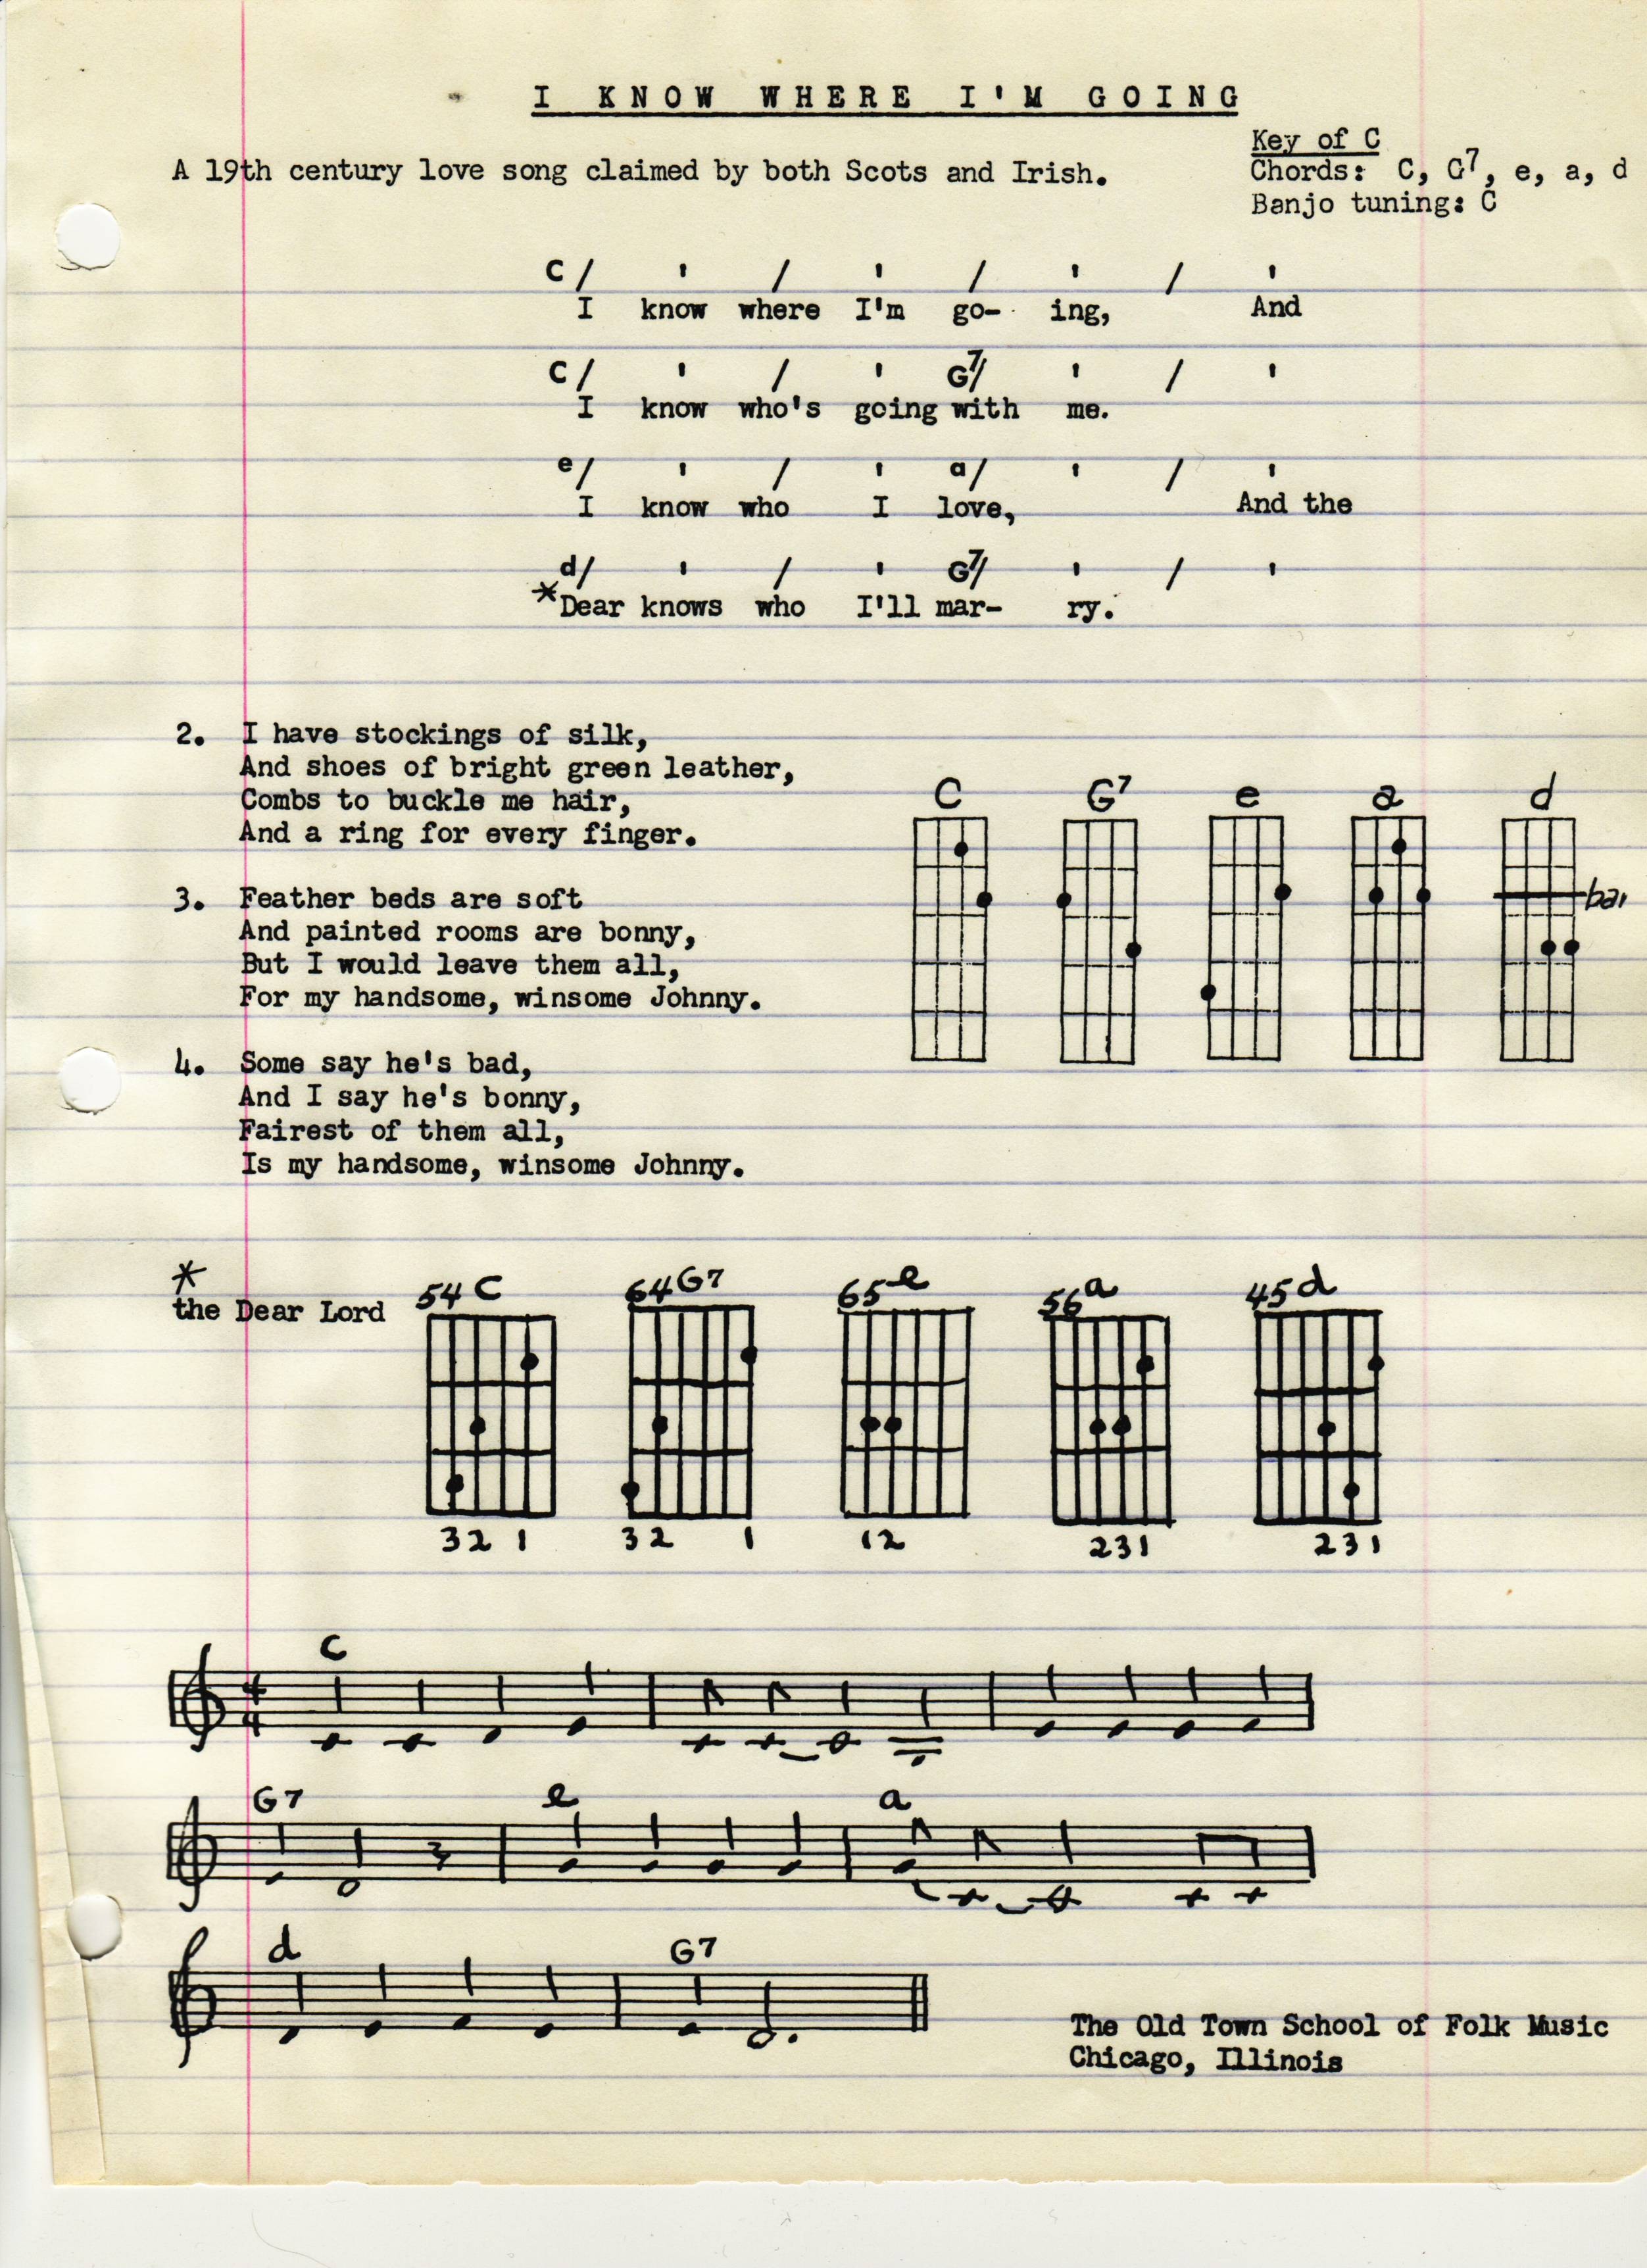 I KNOW WHERE I'M GOING
Key of C
A 19th century love song claimed by both Scots and Irish.
Chords: C, G7, e, a, d
Banjo tuning: C
C / ' / ' / ' / '
I know where I'm go- ing, And
C / ' / ' G7/ ' / '
I know who's going with me.
e/ ' / ' a/ ' / '
I know who I love, And the
d/ ' / ' G7/ ' / '
*Dear knows who I'll mar- ry.
2. I have stockings of silk,
And shoes of bright green leather,
Combs to buckle me hair,
And a ring for every finger.
3. Feather beds are soft
And painted rooms are bonny,
But I would leave them all,
For my handsome, winsome Johnny.
4. Some say he's bad,
And I say he's bonny,
Fairest of them all,
Is my handsome, winsome Johnny.
C G7 e a d
bar
*
the Dear Lord
54 C 64 G7 65 e 56 a 45 d
32 1 32 1 12 231 231
C
4
4
G7 e a
d G7
The Old Town School of Folk Music
Chicago, Illinois